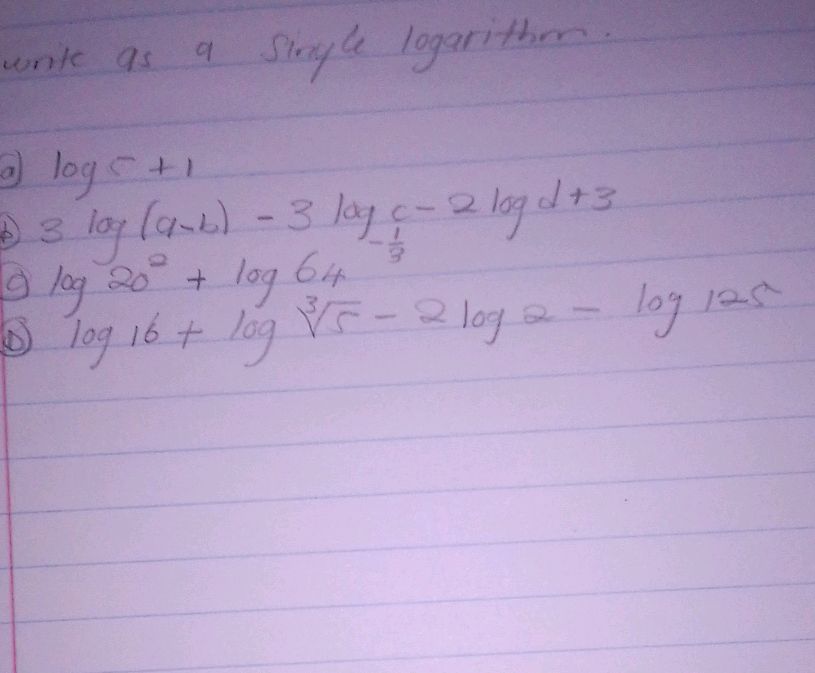 write as a single logarithm.
a) log 5 + 1
b) 3 log (a-b) - 3 log c - 2 log d + 3
c) log 20² + log 64^(-1/3)
D) log 16 + log ∛5 - 2 log 2 - log 125